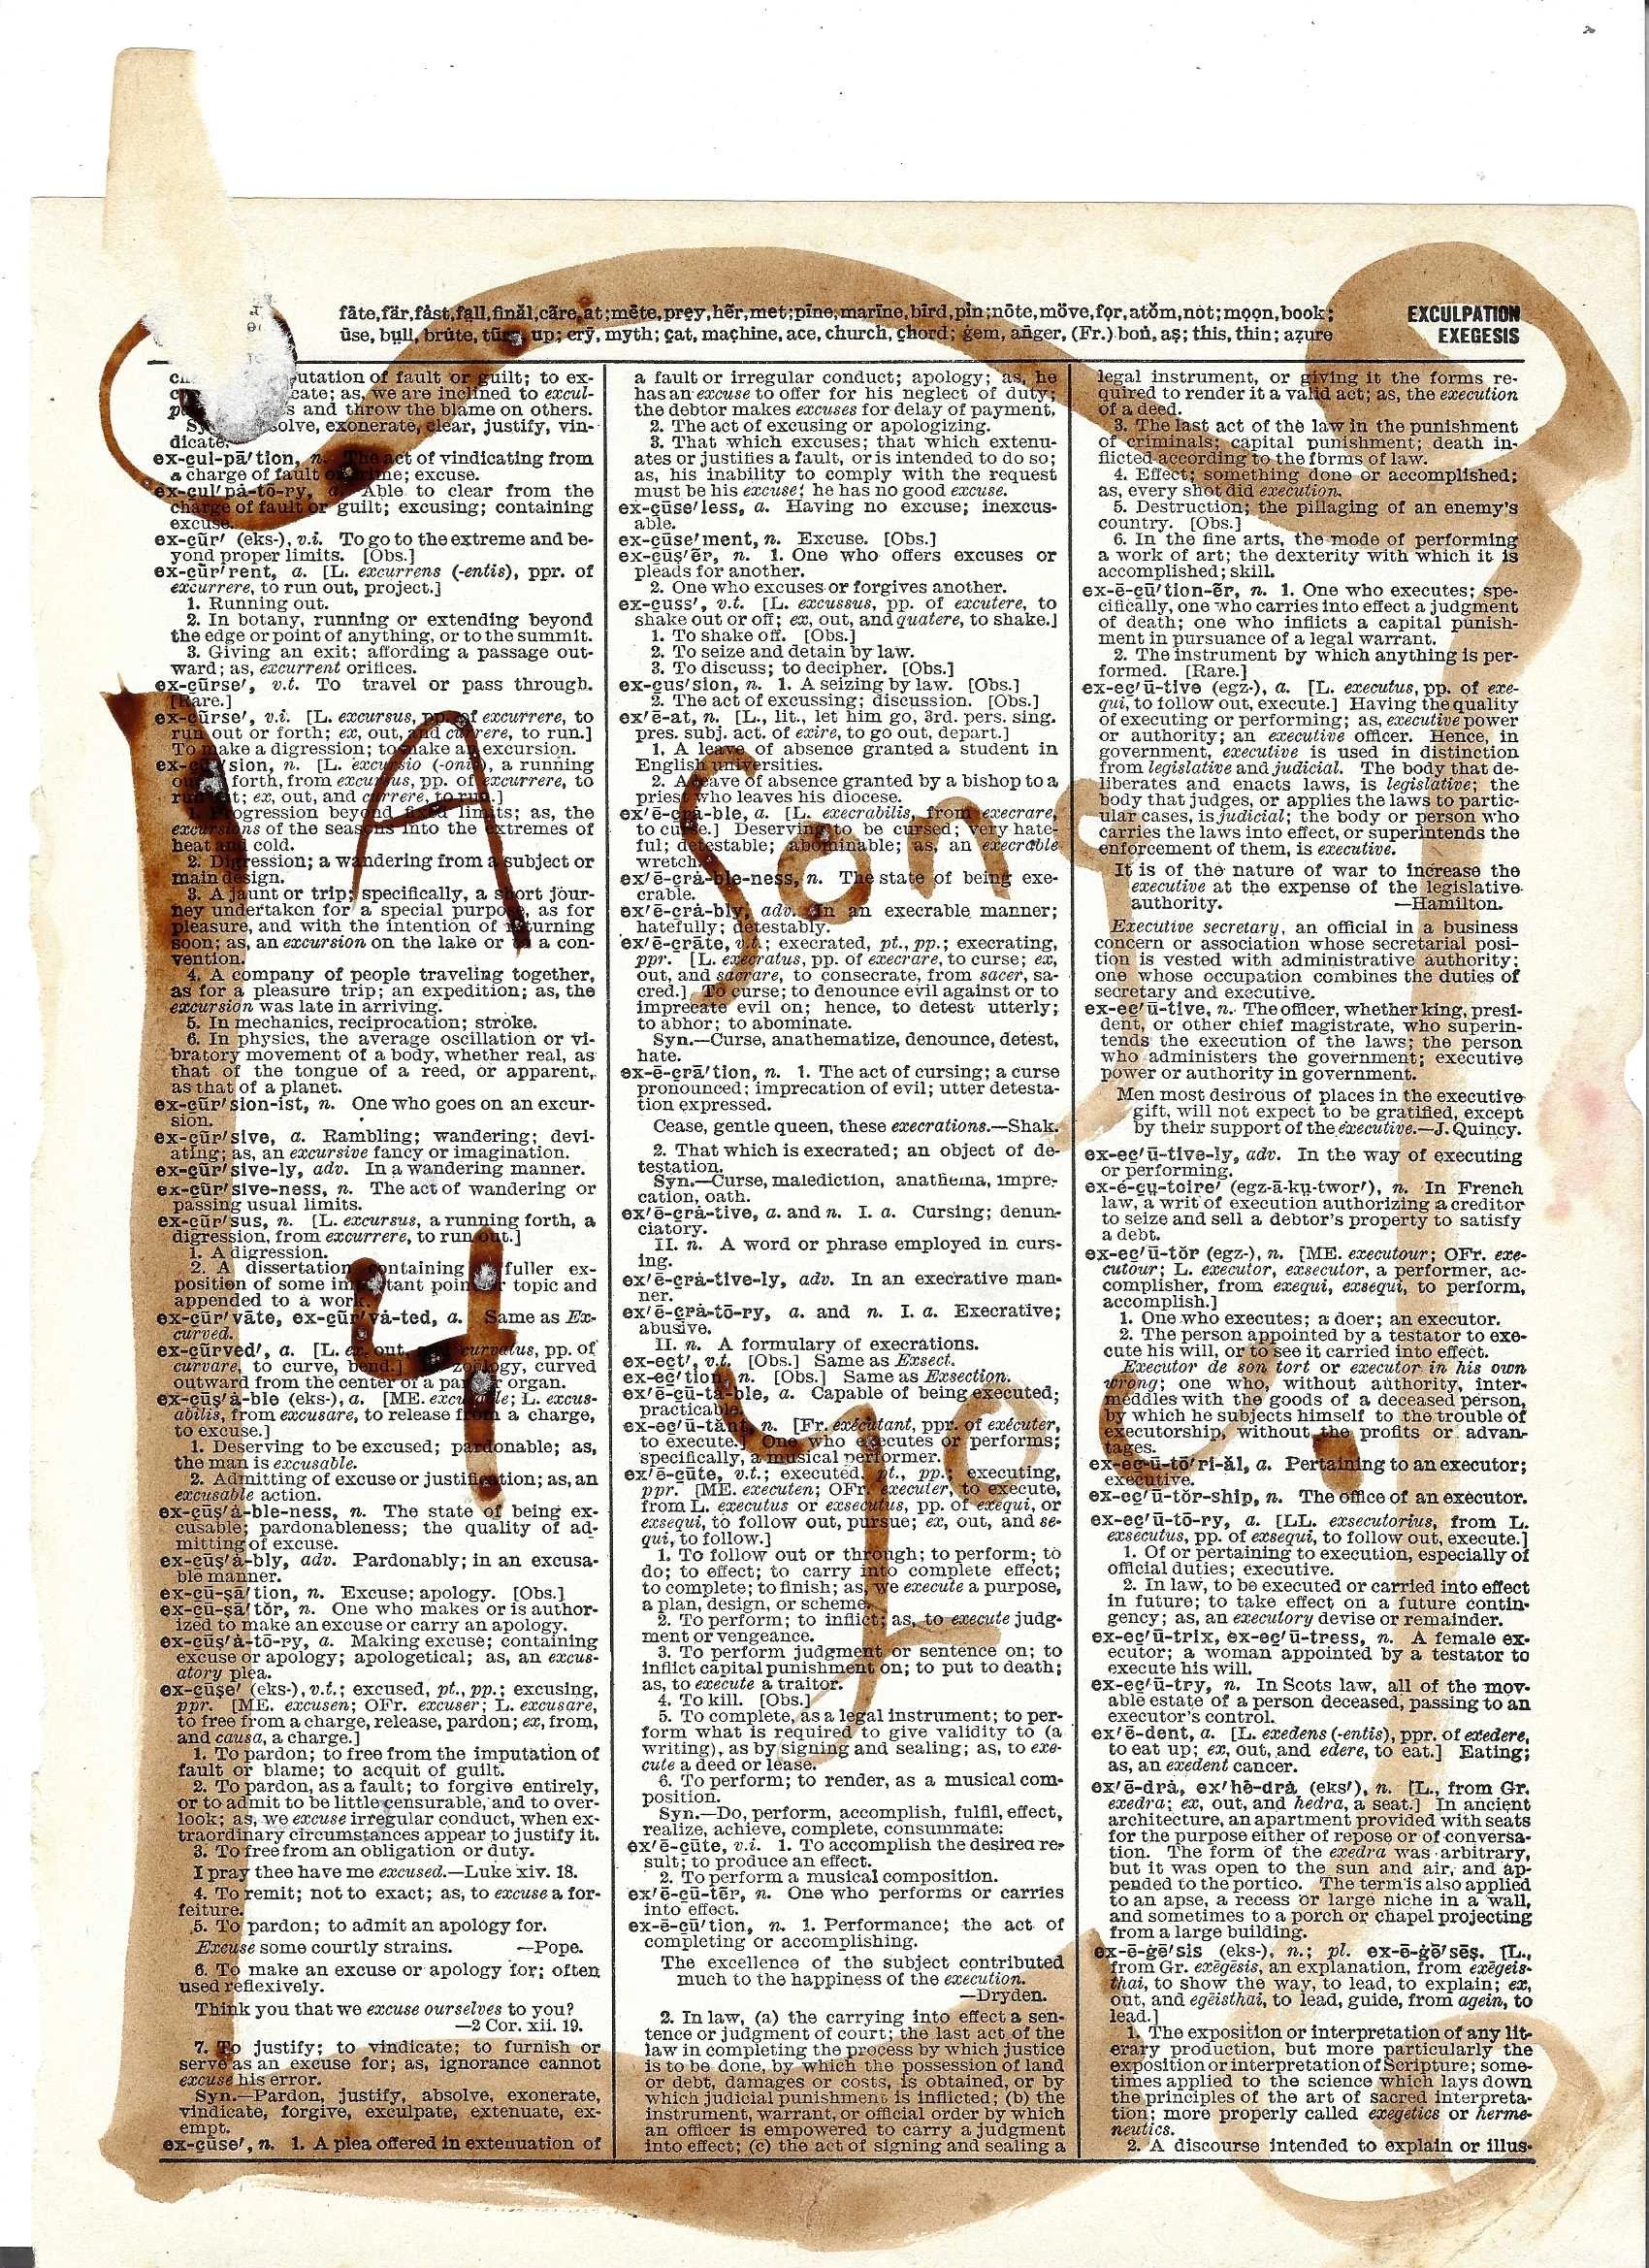 fāte, fär, fȧst, fạll, finăl, cãre, at; mēte, prẹy, hẽr, met; pīne, marïne, bĩrd, pin; nōte, möve, fọr, atŏm, not; mọọn, book;
ūse, bụll, brūte, tũrn, up; crȳ, myth; çat, maçhine, ace, church, çhord; ġem, añger, (Fr.) boṅ, aş; this, thin; azure
EXCULPATION
EXEGESIS
A Song
4 Joe.
utation of fault or guilt; to ex-
cate; as, we are inclined to excul-
s and throw the blame on others.
solve, exonerate, clear, justify, vin-
dicate.
ex-çul-pā′tion, n. The act of vindicating from
a charge of fault or crime; excuse.
ex-çul′pȧ-tō-ry, a. Able to clear from the
charge of fault or guilt; excusing; containing
excuse.
ex-çũr′ (eks-), v.i. To go to the extreme and be-
yond proper limits. [Obs.]
ex-çũr′rent, a. [L. excurrens (-entis), ppr. of
excurrere, to run out, project.]
1. Running out.
2. In botany, running or extending beyond
the edge or point of anything, or to the summit.
3. Giving an exit; affording a passage out-
ward; as, excurrent orifices.
ex-çũrse′, v.t. To travel or pass through.
[Rare.]
ex-çũrse′, v.i. [L. excursus, pp. of excurrere, to
run out or forth; ex, out, and currere, to run.]
To make a digression; to make an excursion.
ex-çũr′sion, n. [L. excursio (-onis), a running
out or forth, from excursus, pp. of excurrere, to
run out; ex, out, and currere, to run.]
1. Progression beyond fixed limits; as, the
excursions of the seasons into the extremes of
heat and cold.
2. Digression; a wandering from a subject or
main design.
3. A jaunt or trip; specifically, a short jour-
ney undertaken for a special purpose, as for
pleasure, and with the intention of returning
soon; as, an excursion on the lake or to a con-
vention.
4. A company of people traveling together,
as for a pleasure trip; an expedition; as, the
excursion was late in arriving.
5. In mechanics, reciprocation; stroke.
6. In physics, the average oscillation or vi-
bratory movement of a body, whether real, as
that of the tongue of a reed, or apparent,
as that of a planet.
ex-çũr′sion-ist, n. One who goes on an excur-
sion.
ex-çũr′sive, a. Rambling; wandering; devi-
ating; as, an excursive fancy or imagination.
ex-çũr′sive-ly, adv. In a wandering manner.
ex-çũr′sive-ness, n. The act of wandering or
passing usual limits.
ex-çũr′sus, n. [L. excursus, a running forth, a
digression, from excurrere, to run out.]
1. A digression.
2. A dissertation containing a fuller ex-
position of some important point or topic and
appended to a work.
ex-çũr′vāte, ex-çũr′vā-ted, a. Same as Ex-
curved.
ex-çũrved′, a. [L. ex, out, and curvatus, pp. of
curvare, to curve, bend.] In zoology, curved
outward from the center of a part or organ.
ex-çūş′ȧ-ble (eks-), a. [ME. excusable; L. excus-
abilis, from excusare, to release from a charge,
to excuse.]
1. Deserving to be excused; pardonable; as,
the man is excusable.
2. Admitting of excuse or justification; as, an
excusable action.
ex-çūş′ȧ-ble-ness, n. The state of being ex-
cusable; pardonableness; the quality of ad-
mitting of excuse.
ex-çūş′ȧ-bly, adv. Pardonably; in an excusa-
ble manner.
ex-çū-şā′tion, n. Excuse; apology. [Obs.]
ex-çū-şā′tŏr, n. One who makes or is author-
ized to make an excuse or carry an apology.
ex-çūş′ȧ-tō-ry, a. Making excuse; containing
excuse or apology; apologetical; as, an excus-
atory plea.
ex-çūşe′ (eks-), v.t.; excused, pt., pp.; excusing,
ppr. [ME. excusen; OFr. excuser; L. excusare,
to free from a charge, release, pardon; ex, from,
and causa, a charge.]
1. To pardon; to free from the imputation of
fault or blame; to acquit of guilt.
2. To pardon, as a fault; to forgive entirely,
or to admit to be little censurable, and to over-
look; as, we excuse irregular conduct, when ex-
traordinary circumstances appear to justify it.
3. To free from an obligation or duty.
I pray thee have me excused.—Luke xiv. 18.
4. To remit; not to exact; as, to excuse a for-
feiture.
5. To pardon; to admit an apology for.
Excuse some courtly strains. —Pope.
6. To make an excuse or apology for; often
used reflexively.
Think you that we excuse ourselves to you?
—2 Cor. xii. 19.
7. To justify; to vindicate; to furnish or
serve as an excuse for; as, ignorance cannot
excuse his error.
Syn.—Pardon, justify, absolve, exonerate,
vindicate, forgive, exculpate, extenuate, ex-
empt.
ex-çūse′, n. 1. A plea offered in extenuation of
a fault or irregular conduct; apology; as, he
has an excuse to offer for his neglect of duty;
the debtor makes excuses for delay of payment.
2. The act of excusing or apologizing.
3. That which excuses; that which extenu-
ates or justifies a fault, or is intended to do so;
as, his inability to comply with the request
must be his excuse; he has no good excuse.
ex-çūse′less, a. Having no excuse; inexcus-
able.
ex-çūse′ment, n. Excuse. [Obs.]
ex-çūş′ẽr, n. 1. One who offers excuses or
pleads for another.
2. One who excuses or forgives another.
ex-çuss′, v.t. [L. excussus, pp. of excutere, to
shake out or off; ex, out, and quatere, to shake.]
1. To shake off. [Obs.]
2. To seize and detain by law.
3. To discuss; to decipher. [Obs.]
ex-çus′sion, n. 1. A seizing by law. [Obs.]
2. The act of excussing; discussion. [Obs.]
ex′ē-at, n. [L., lit., let him go, 3rd. pers. sing.
pres. subj. act. of exire, to go out, depart.]
1. A leave of absence granted a student in
English universities.
2. A leave of absence granted by a bishop to a
priest who leaves his diocese.
ex′ē-çrȧ-ble, a. [L. execrabilis, from execrare,
to curse.] Deserving to be cursed; very hate-
ful; detestable; abominable; as, an execrable
wretch.
ex′ē-çrȧ-ble-ness, n. The state of being exe-
crable.
ex′ē-çrȧ-bly, adv. In an execrable manner;
hatefully; detestably.
ex′ē-çrāte, v.t.; execrated, pt., pp.; execrating,
ppr. [L. execratus, pp. of execrare, to curse; ex,
out, and sacrare, to consecrate, from sacer, sa-
cred.] To curse; to denounce evil against or to
imprecate evil on; hence, to detest utterly;
to abhor; to abominate.
Syn.—Curse, anathematize, denounce, detest,
hate.
ex-ē-çrā′tion, n. 1. The act of cursing; a curse
pronounced; imprecation of evil; utter detesta-
tion expressed.
Cease, gentle queen, these execrations.—Shak.
2. That which is execrated; an object of de-
testation.
Syn.—Curse, malediction, anathema, impre-
cation, oath.
ex′ē-çrȧ-tive, a. and n. I. a. Cursing; denun-
ciatory.
II. n. A word or phrase employed in curs-
ing.
ex′ē-çrȧ-tive-ly, adv. In an execrative man-
ner.
ex′ē-çrȧ-tō-ry, a. and n. I. a. Execrative;
abusive.
II. n. A formulary of execrations.
ex-eçt′, v.t. [Obs.] Same as Exsect.
ex-eç′tion, n. [Obs.] Same as Exsection.
ex′ē-çū-tȧ-ble, a. Capable of being executed;
practicable.
ex-eç′ū-tănt, n. [Fr. exécutant, ppr. of exécuter,
to execute.] One who executes or performs;
specifically, a musical performer.
ex′ē-çūte, v.t.; executed, pt., pp.; executing,
ppr. [ME. executen; OFr. executer, to execute,
from L. executus or exsecutus, pp. of exequi, or
exsequi, to follow out, pursue; ex, out, and se-
qui, to follow.]
1. To follow out or through; to perform; to
do; to effect; to carry into complete effect;
to complete; to finish; as, we execute a purpose,
a plan, design, or scheme.
2. To perform; to inflict; as, to execute judg-
ment or vengeance.
3. To perform judgment or sentence on; to
inflict capital punishment on; to put to death;
as, to execute a traitor.
4. To kill. [Obs.]
5. To complete, as a legal instrument; to per-
form what is required to give validity to (a
writing), as by signing and sealing; as, to exe-
cute a deed or lease.
6. To perform; to render, as a musical com-
position.
Syn.—Do, perform, accomplish, fulfil, effect,
realize, achieve, complete, consummate.
ex′ē-çūte, v.i. 1. To accomplish the desired re-
sult; to produce an effect.
2. To perform a musical composition.
ex′ē-çū-tẽr, n. One who performs or carries
into effect.
ex-ē-çū′tion, n. 1. Performance; the act of
completing or accomplishing.
The excellence of the subject contributed
much to the happiness of the execution.
—Dryden.
2. In law, (a) the carrying into effect a sen-
tence or judgment of court; the last act of the
law in completing the process by which justice
is to be done, by which the possession of land
or debt, damages or costs, is obtained, or by
which judicial punishment is inflicted; (b) the
instrument, warrant, or official order by which
an officer is empowered to carry a judgment
into effect; (c) the act of signing and sealing a
legal instrument, or giving it the forms re-
quired to render it a valid act; as, the execution
of a deed.
3. The last act of the law in the punishment
of criminals; capital punishment; death in-
flicted according to the forms of law.
4. Effect; something done or accomplished;
as, every shot did execution.
5. Destruction; the pillaging of an enemy's
country. [Obs.]
6. In the fine arts, the mode of performing
a work of art; the dexterity with which it is
accomplished; skill.
ex-ē-çū′tion-ẽr, n. 1. One who executes; spe-
cifically, one who carries into effect a judgment
of death; one who inflicts a capital punish-
ment in pursuance of a legal warrant.
2. The instrument by which anything is per-
formed. [Rare.]
ex-eç′ū-tive (egz-), a. [L. executus, pp. of exe-
qui, to follow out, execute.] Having the quality
of executing or performing; as, executive power
or authority; an executive officer. Hence, in
government, executive is used in distinction
from legislative and judicial. The body that de-
liberates and enacts laws, is legislative; the
body that judges, or applies the laws to partic-
ular cases, is judicial; the body or person who
carries the laws into effect, or superintends the
enforcement of them, is executive.
It is of the nature of war to increase the
executive at the expense of the legislative
authority. —Hamilton.
Executive secretary, an official in a business
concern or association whose secretarial posi-
tion is vested with administrative authority;
one whose occupation combines the duties of
secretary and executive.
ex-eç′ū-tive, n. The officer, whether king, presi-
dent, or other chief magistrate, who superin-
tends the execution of the laws; the person
who administers the government; executive
power or authority in government.
Men most desirous of places in the executive
gift, will not expect to be gratified, except
by their support of the executive.—J. Quincy.
ex-eç′ū-tive-ly, adv. In the way of executing
or performing.
ex-é-çụ-toire′ (egz-ā-kụ-twor′), n. In French
law, a writ of execution authorizing a creditor
to seize and sell a debtor's property to satisfy
a debt.
ex-eç′ū-tŏr (egz-), n. [ME. executour; OFr. exe-
cutour; L. executor, exsecutor, a performer, ac-
complisher, from exequi, exsequi, to perform,
accomplish.]
1. One who executes; a doer; an executor.
2. The person appointed by a testator to exe-
cute his will, or to see it carried into effect.
Executor de son tort or executor in his own
wrong; one who, without authority, inter-
meddles with the goods of a deceased person,
by which he subjects himself to the trouble of
executorship, without the profits or advan-
tages.
ex-eç-ū-tō′ri-ăl, a. Pertaining to an executor;
executive.
ex-eç′ū-tŏr-ship, n. The office of an executor.
ex-eç′ū-tō-ry, a. [LL. exsecutorius, from L.
exsecutus, pp. of exsequi, to follow out, execute.]
1. Of or pertaining to execution, especially of
official duties; executive.
2. In law, to be executed or carried into effect
in future; to take effect on a future contin-
gency; as, an executory devise or remainder.
ex-eç′ū-trix, ex-eç′ū-tress, n. A female ex-
ecutor; a woman appointed by a testator to
execute his will.
ex-eç′ū-try, n. In Scots law, all of the mov-
able estate of a person deceased, passing to an
executor's control.
ex′ē-dent, a. [L. exedens (-entis), ppr. of exedere,
to eat up; ex, out, and edere, to eat.] Eating;
as, an exedent cancer.
ex′ē-drȧ, ex′hē-drȧ (eks′), n. [L., from Gr.
exedra; ex, out, and hedra, a seat.] In ancient
architecture, an apartment provided with seats
for the purpose either of repose or of conversa-
tion. The form of the exedra was arbitrary,
but it was open to the sun and air, and ap-
pended to the portico. The term is also applied
to an apse, a recess or large niche in a wall,
and sometimes to a porch or chapel projecting
from a large building.
ex-ē-ġē′sis (eks-), n.; pl. ex-ē-ġē′sēş. [L.,
from Gr. exēgēsis, an explanation, from exēgeis-
thai, to show the way, to lead, to explain; ex,
out, and egēisthai, to lead, guide, from agein, to
lead.]
1. The exposition or interpretation of any lit-
erary production, but more particularly the
exposition or interpretation of Scripture; some-
times applied to the science which lays down
the principles of the art of sacred interpreta-
tion; more properly called exegetics or herme-
neutics.
2. A discourse intended to explain or illus-